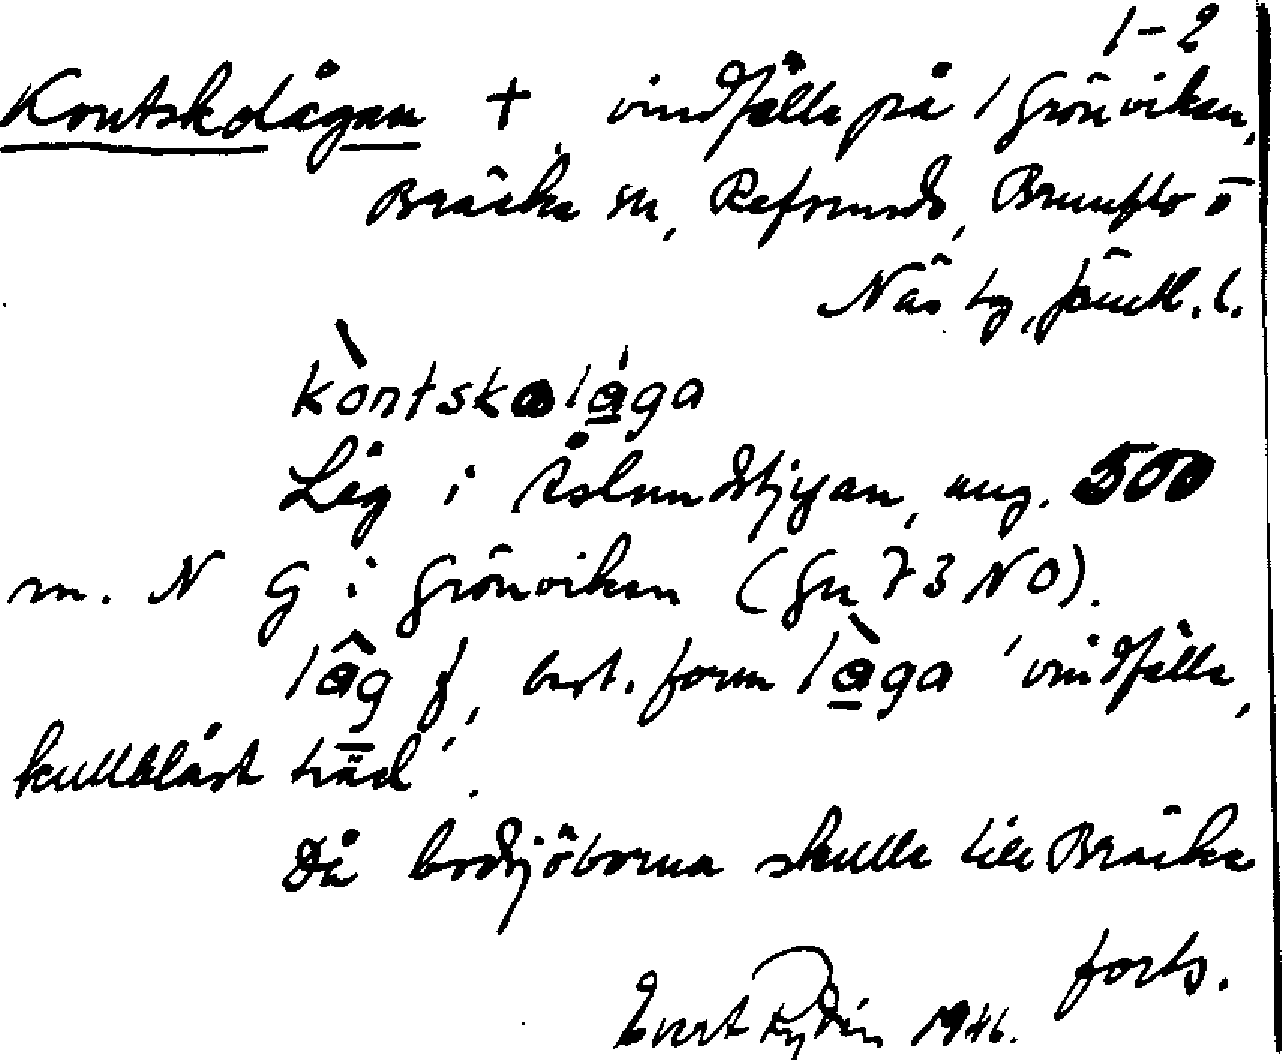 1-2
Kontskdågan † vindfälle på 1 Grönviken,
Bräcke sn, Refsunds, Brunflo o
Näs tg, Jämtl. l.
kòntskalåga
Låg i stjgan, ung. 500
m. N G i Grönviken (Gn 73 NO).
låg f, best. form låga 'vindfälle,
kullblåst träd'.
Då bodsjöborna skulle till Bräcke
forts.
Evert Rydén 1946.